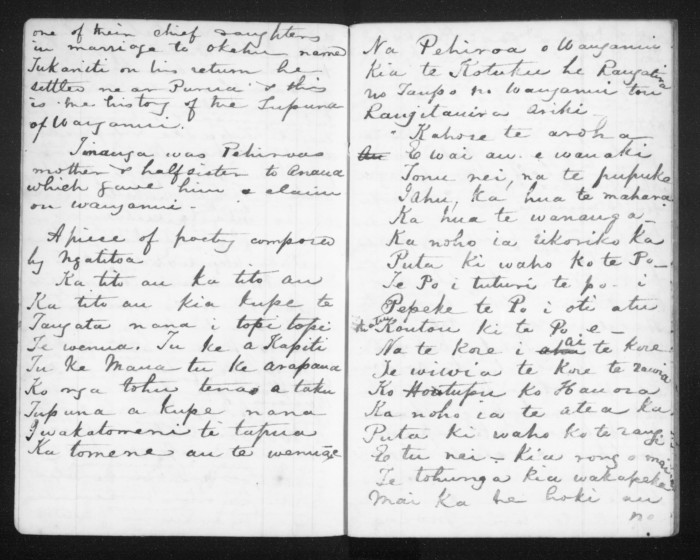 one of their chief daughters
in marriage to Okehu named
Tukaniti on his return he
settled near Purua & this
is the history of the Tupuna
of Wanganui.
Tinanga was Pehiroas
mother & half sister to Anaua
which gave him a claim
on Wanganui -
A piece of poetry composed
by Ngatitoa
Ka tito au ka tito au
Ka tito au kia kupe te
Tangata nana i topi topi
Te wenua. Tu ke a Kapiti
Tu ke Mana tu ke arapaua
Ko nga tohu tena a taku
Tupuna a kupe nana
I wakatomene te tapua
Ka tomene au te wenua e
Na Pehiroa o Wanganui
Kia te Kotuku he Rangatira
no Taupo no Wanganui tou
Rangitauira Ariki -
" Kahore te aroha
E wai au. e wanaki
Tonu nei, na te pupuke
Iahu, Ka hua te mahara
Ka hua te wananga -
Ka noho ia rikoriko ka
Puta ki waho ko te Po -
Te Po i tuturi te po - i
Pepeke te Po i oti atu
Koutou ki te Po e -
Na te kore i ai te kore
Te wiwia te kore te rawea
Ko Hotupu ko Hauora
Ka noho ia te atea ka
Puta ki waho ko te rangi
E tu nei - kia rongo mai
Te tohunga kia wakapeka
Mai ka he hoki au
no